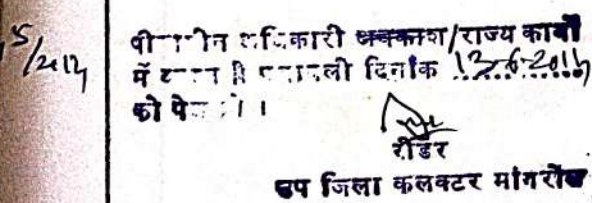 5/2014
पीठासीन अधिकारी अवकाश/राज्य कार्यों
में व्यस्त है पत्रावली दिनांक 13-6-2014
को पेश हो ।
रीडर
उप जिला कलक्टर मांगरोल